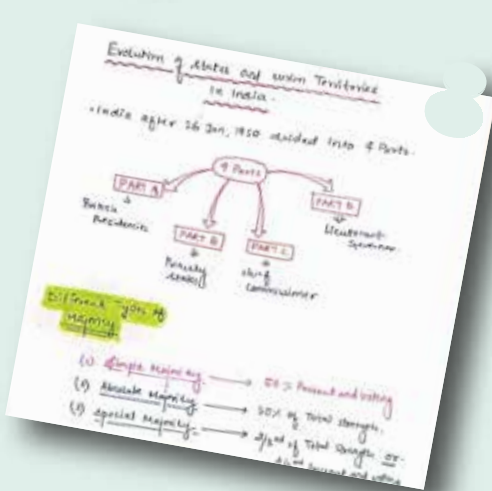 Evolution of states and union Territories
in India.
• India after 26 Jan, 1950 divided into 4 Parts.
4 Parts
PART A
British
Presidencies
PART B
Princely
states
PART C
chief
commissioner
PART D
Lieutenant
Governor
Different Types of
Majority
(1) Simple Majority → 50% Present and voting
(2) Absolute Majority → 50% of Total strength.
(3) Special Majority → 2/3rd of Total strength or
2/3rd Present and voting